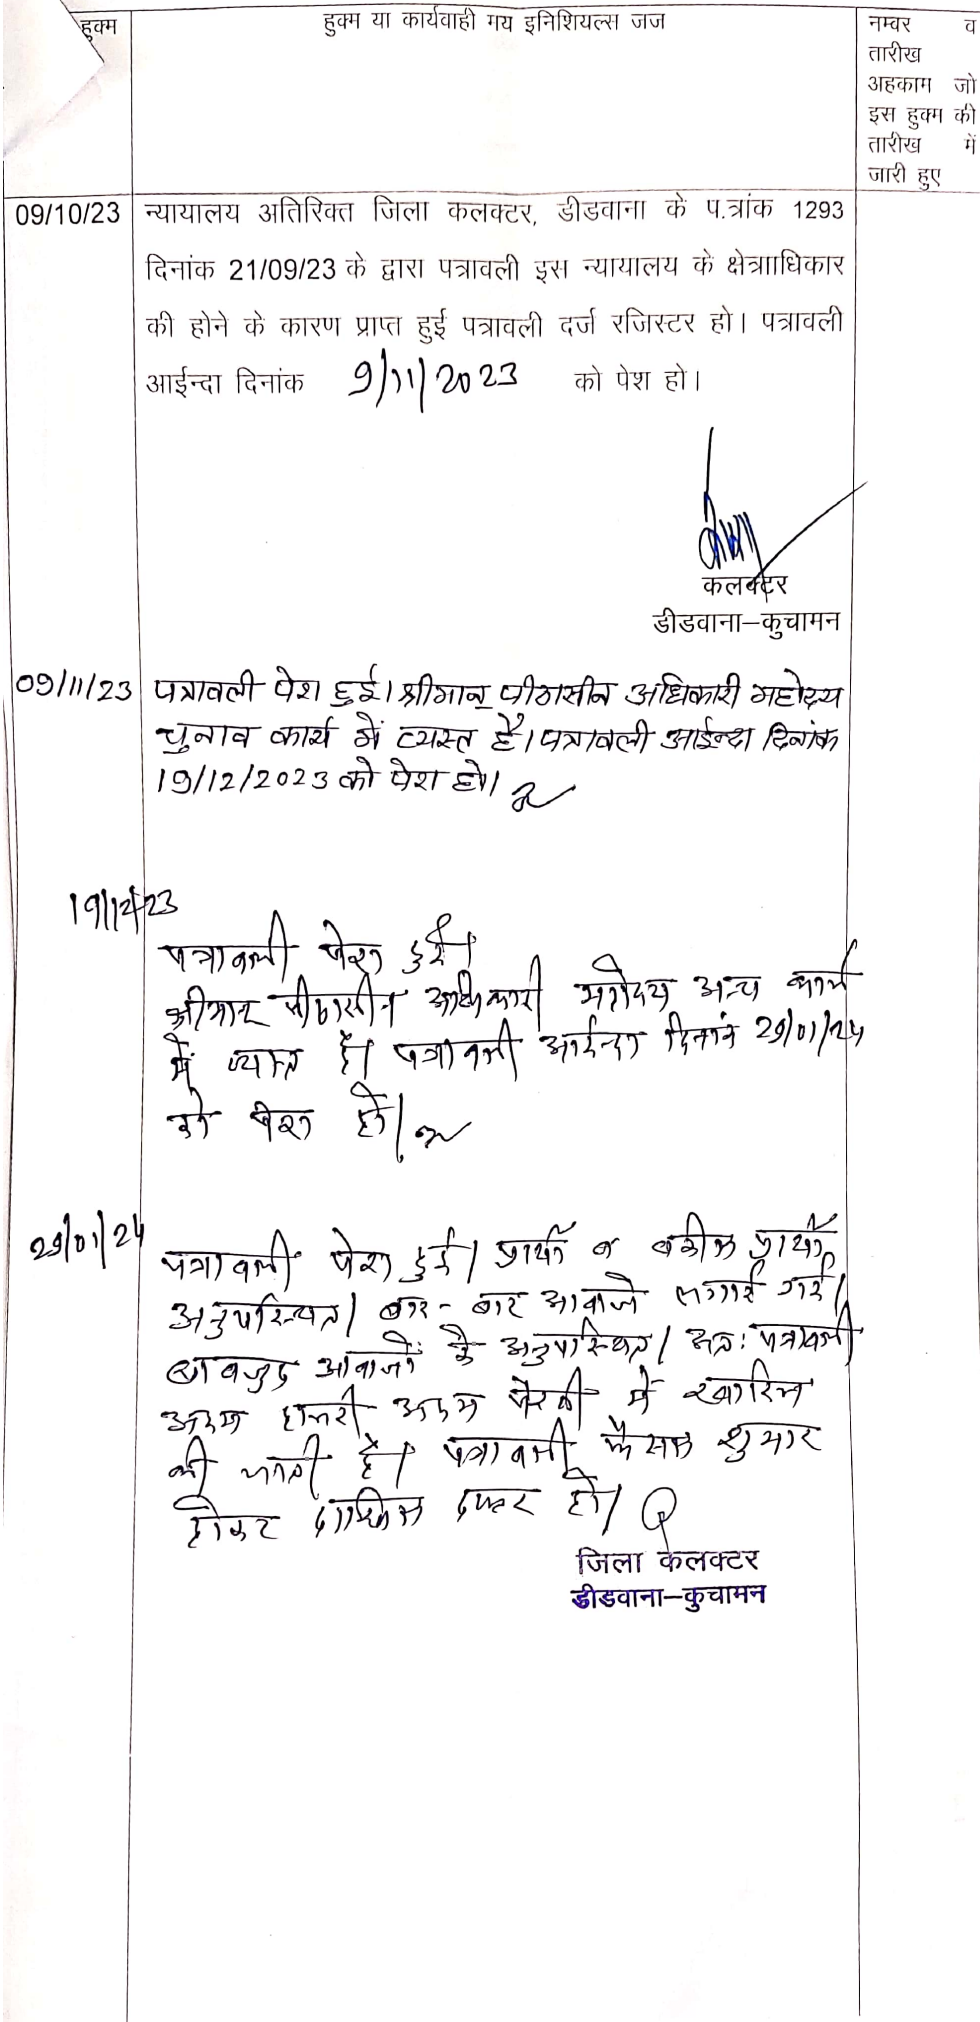 हुक्म
हुक्म या कार्यवाही मय इनिशियल्स जज
नम्वर व
तारीख
अहकाम जो
इस हुक्म की
तारीख में
जारी हुए
09/10/23
न्यायालय अतिरिक्त जिला कलक्टर, डीडवाना के प.त्रांक 1293
दिनांक 21/09/23 के द्वारा पत्रावली इस न्यायालय के क्षेत्रााधिकार
की होने के कारण प्राप्त हुई पत्रावली दर्ज रजिस्टर हो। पत्रावली
आईन्दा दिनांक 9/11/2023 को पेश हो।
कलक्टर
डीडवाना–कुचामन
09/11/23
पत्रावली पेश हुई। श्रीमान् पीठासीन अधिकारी महोदय
चुनाव कार्य में व्यस्त है। पत्रावली आईन्दा दिनांक
19/12/2023 को पेश हो।
19/12/23
पत्रावली पेश हुई।
श्रीमान् पीठासीन अधिकारी महोदय अन्य कार्य
में व्यस्त है। पत्रावली आईन्दा दिनांक 29/01/24
को पेश हो।
29/01/24
पत्रावली पेश हुई। प्रार्थी व वकील प्रार्थी
अनुपस्थित। बार-बार आवाजे लगाई गई।
बावजुद आवाजों के अनुपस्थित। अतः पत्रावली
अदम हाजरी अदम पेरवी में खारिज
की जाती है। पत्रावली फैसल शुमार
होकर दाखिल दफ्तर हो।
जिला कलक्टर
डीडवाना–कुचामन